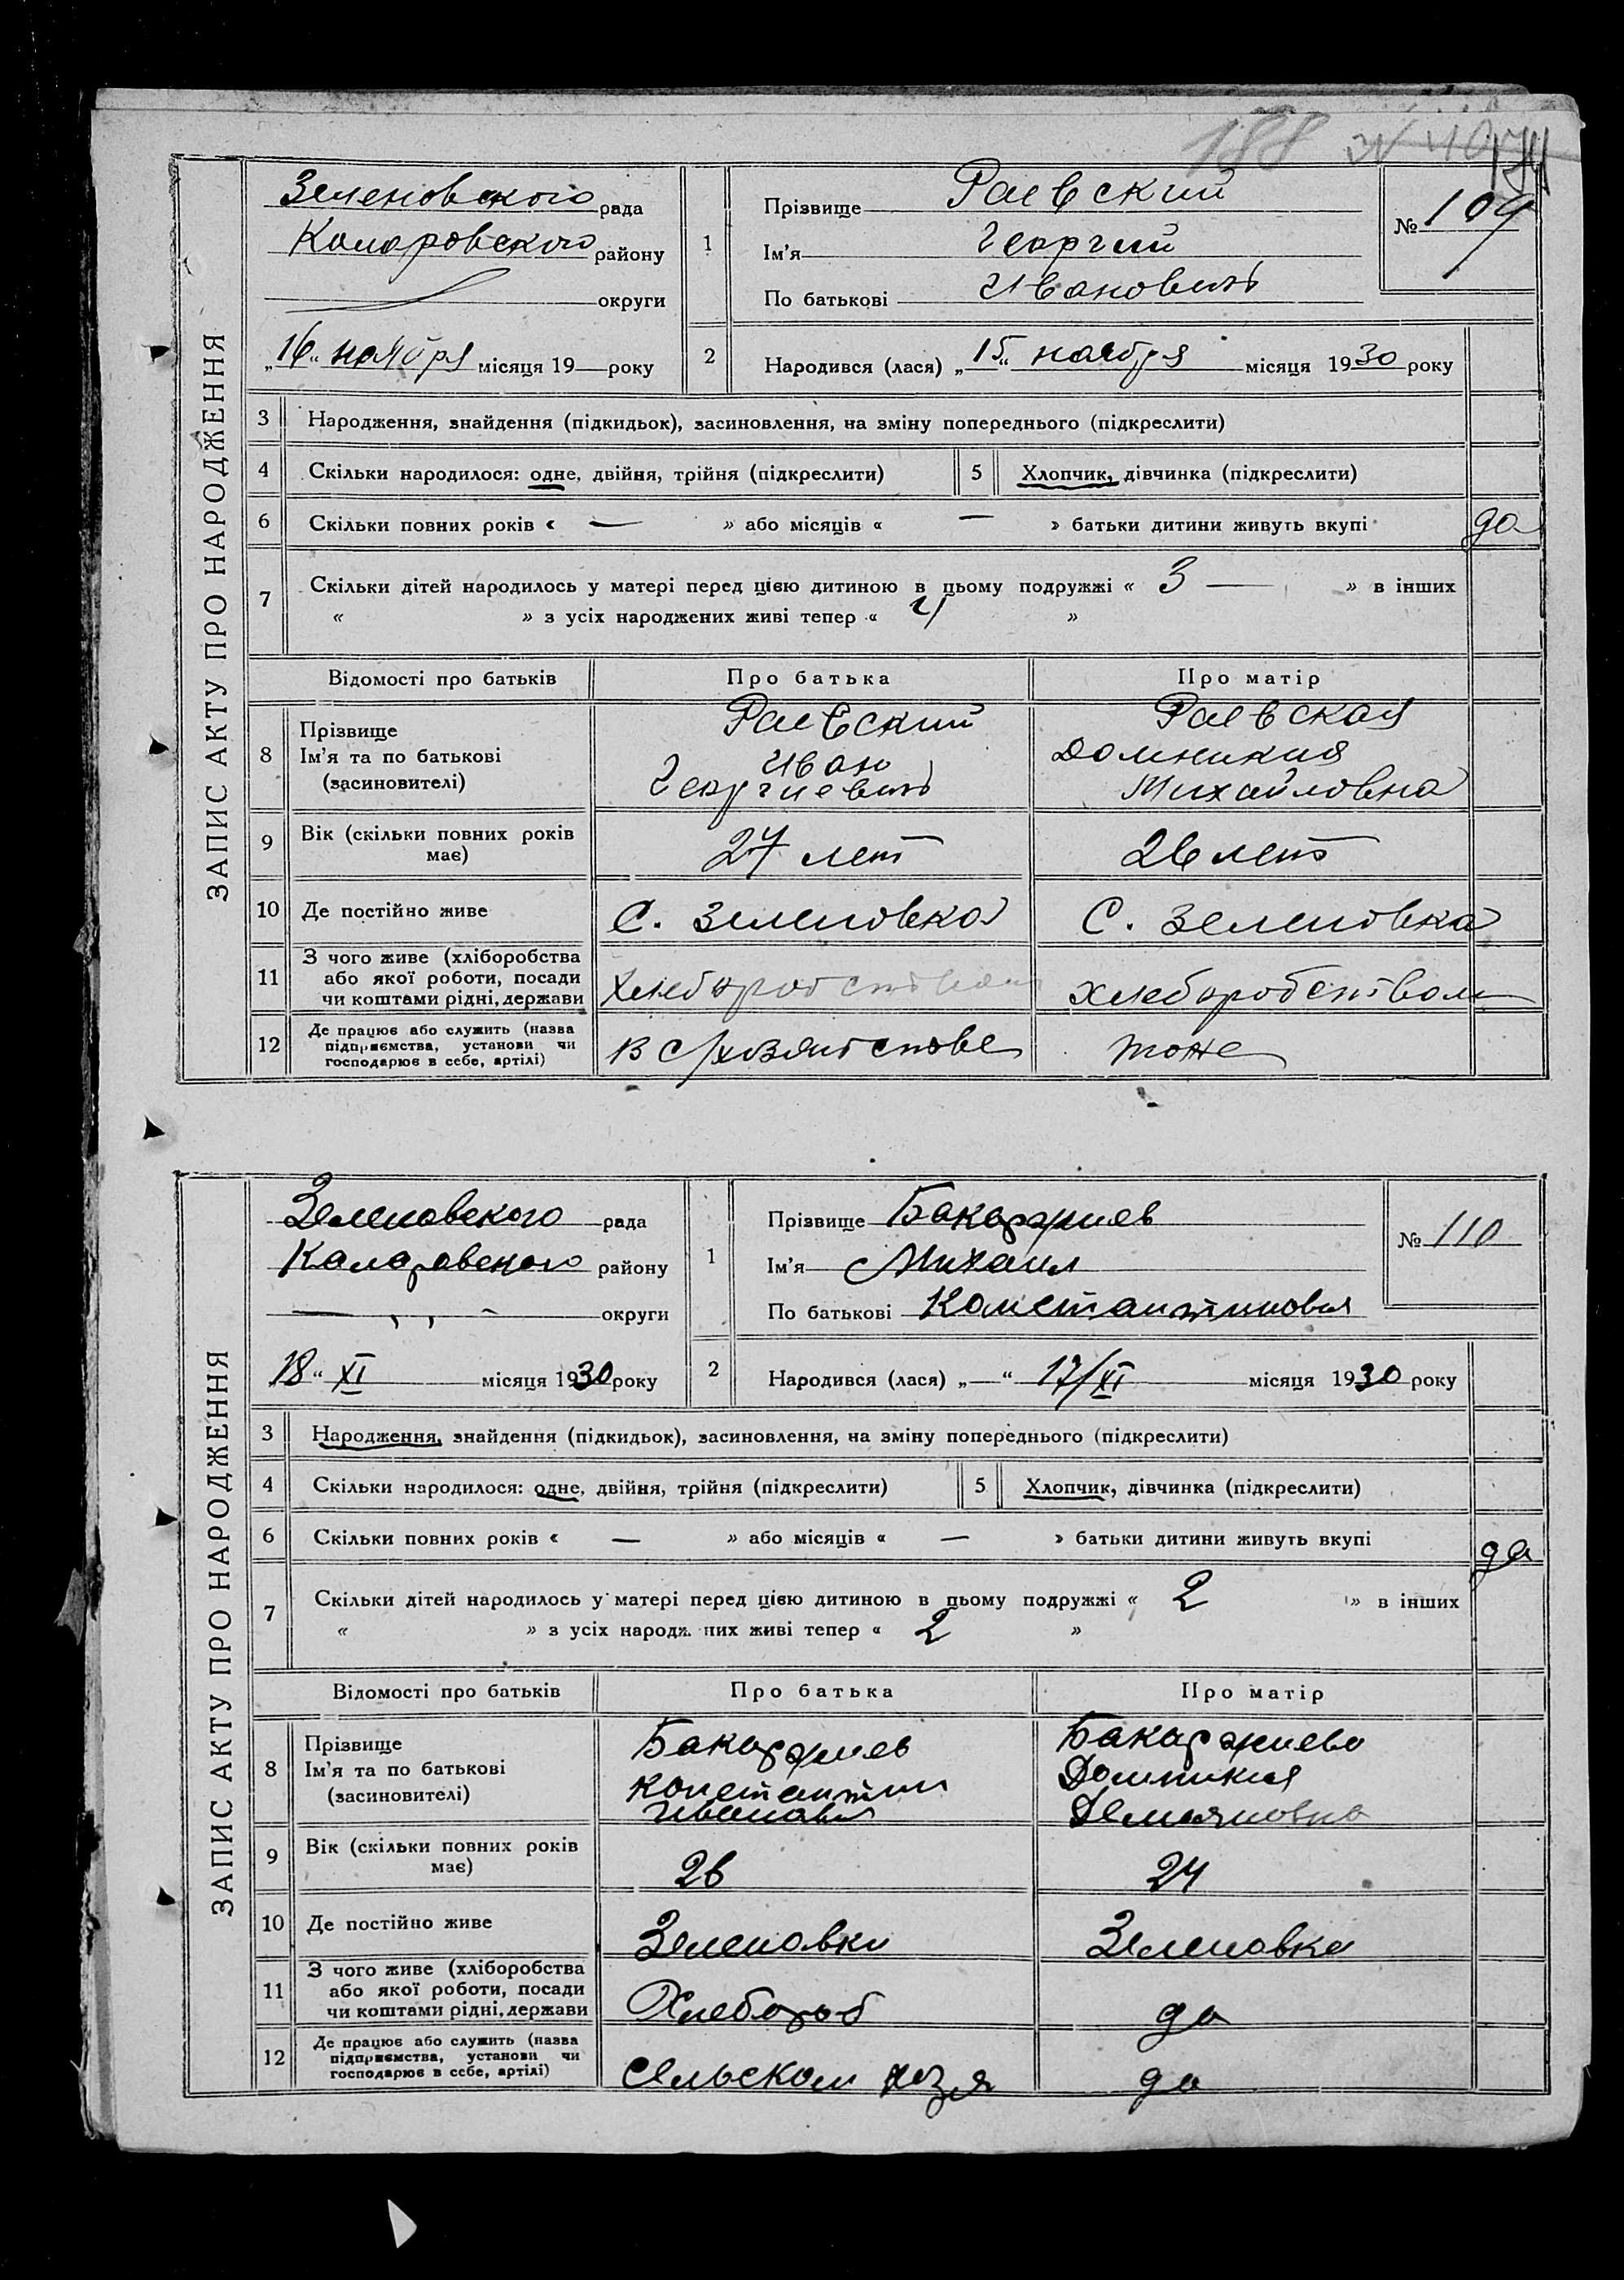 188
ЗАПИС АКТУ ПРО НАРОДЖЕННЯ
Зеленовского рада
Коларовского району
округи
„16“ ноября місяця 19 — року
1
Прізвище Раевский
Ім'я Георгий
По батькові Ивановичь
№ 109
2
Народився (лася) „15“ ноября місяця 1930 року
3 Народження, знайдення (підкидьок), засиновлення, на зміну попереднього (підкреслити)
4 Скільки народилося: одне, двійня, трійня (підкреслити) 5 Хлопчик, дівчинка (підкреслити)
6 Скільки повних років « — » або місяців « — » батьки дитини живуть вкупі да
7 Скільки дітей народилось у матері перед цією дитиною в цьому подружжі « 3 — » в інших
« » з усіх народжених живі тепер « 4 »
Відомості про батьків Про батька Про матір
8
Прізвище
Ім'я та по батькові
(засиновителі)
Раевский
Иван
Георгиевичь
Раевская
Домникия
Михайловна
9 Вік (скільки повних років має) 27 лет 26 лет
10 Де постійно живе С. Зеленовка С. Зеленовка
11 З чого живе (хліборобства
або якої роботи, посади
чи коштами рідні, держави
Хлеборобством хлеборобством
12 Де працює або служить (назва
підприємства, установи чи
господарює в себе, артілі)
В с/хозяйстве тоже
ЗАПИС АКТУ ПРО НАРОДЖЕННЯ
Зеленовского рада
Каларовского району
округи
„18“ XI місяця 1930 року
1
Прізвище Бакарджиев
Ім'я Михаил
По батькові Константинович
№ 110
2
Народився (лася) „—“ 17/XI місяця 1930 року
3 Народження, знайдення (підкидьок), засиновлення, на зміну попереднього (підкреслити)
4 Скільки народилося: одне, двійня, трійня (підкреслити) 5 Хлопчик, дівчинка (підкреслити)
6 Скільки повних років « — » або місяців « — » батьки дитини живуть вкупі да
7 Скільки дітей народилось у матері перед цією дитиною в цьому подружжі « 2 » в інших
« » з усіх народжених живі тепер « 2 »
Відомості про батьків Про батька Про матір
8
Прізвище
Ім'я та по батькові
(засиновителі)
Бакарджиев
Константин
Иванович
Бакарджиева
Домникия
Демяновна
9 Вік (скільки повних років має) 26 24
10 Де постійно живе Зеленовки Зеленовка
11 З чого живе (хліборобства
або якої роботи, посади
чи коштами рідні, держави
Хлебороб да
12 Де працює або служить (назва
підприємства, установи чи
господарює в себе, артілі)
Сельском хозя да